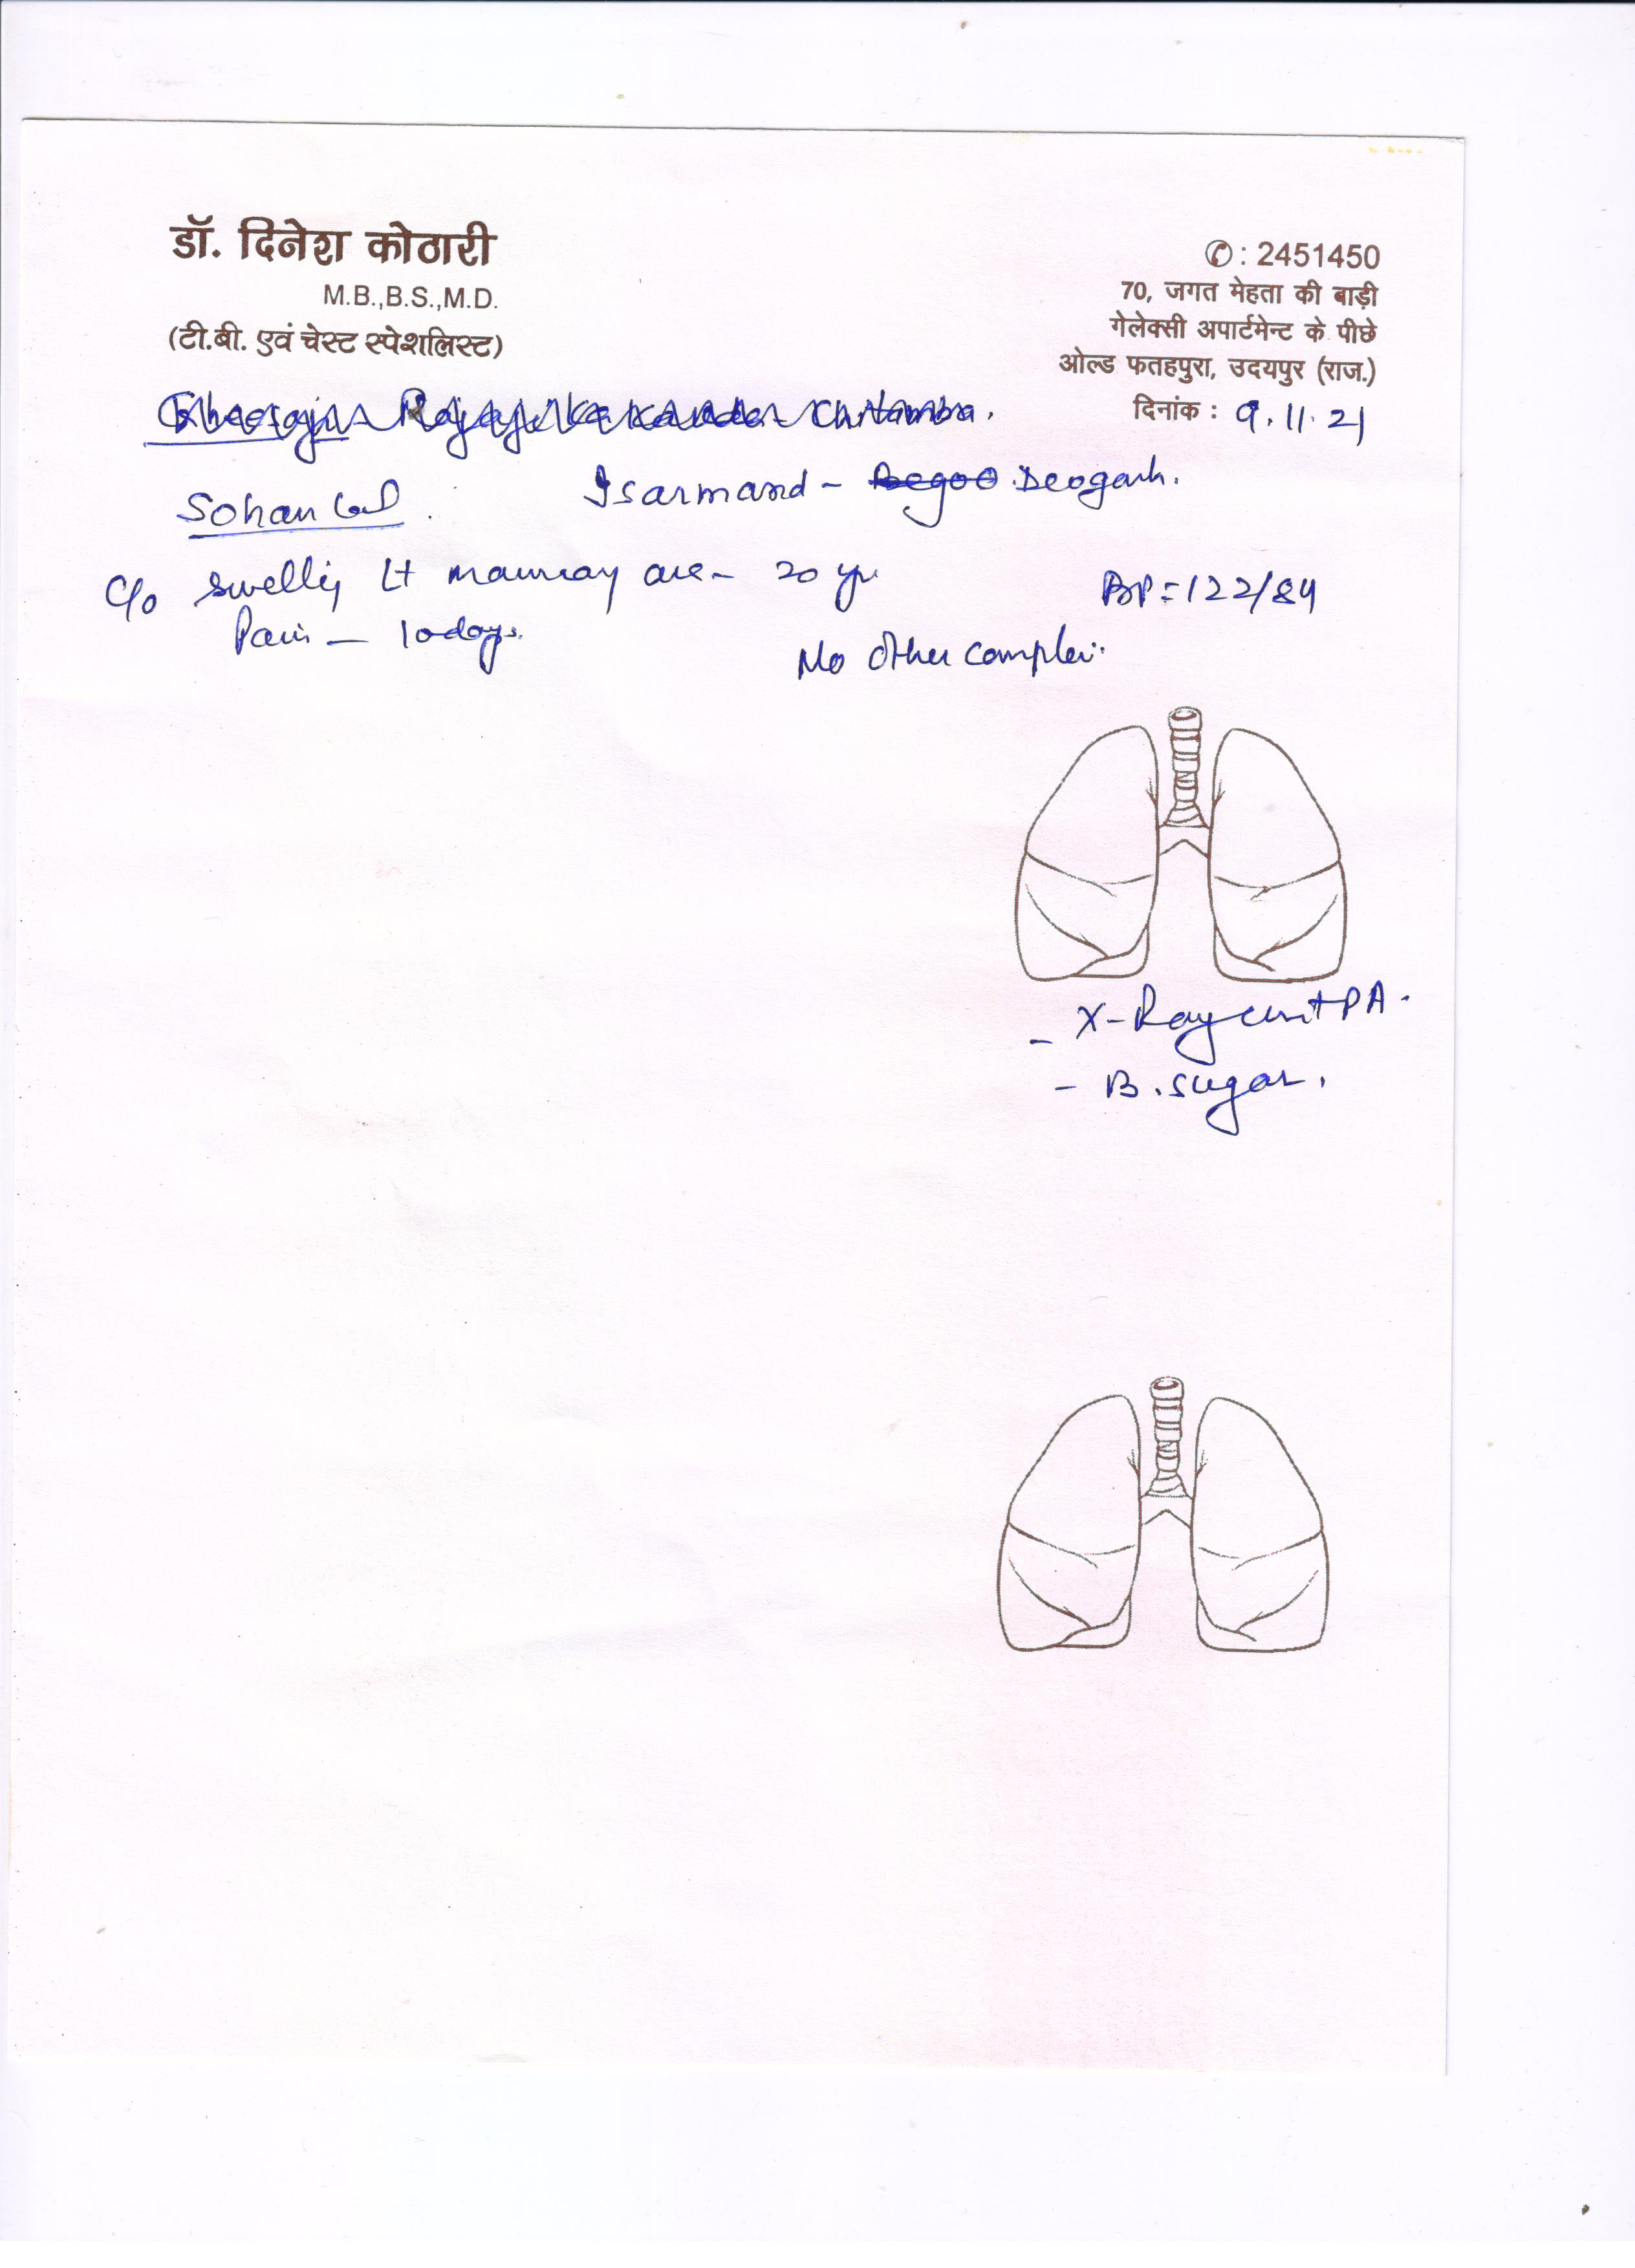 डॉ. दिनेश कोठारी
M.B.,B.S.,M.D.
(टी.बी. एवं चेस्ट स्पेशलिस्ट)
✆ : 2451450
70, जगत मेहता की बाड़ी
गेलेक्सी अपार्टमेन्ट के पीछे
ओल्ड फतहपुरा, उदयपुर (राज.)
दिनांक : 9.11.21
Chitamba.
Sohan Lal. Isarmand - Begoo Deogarh.
C/o swelling Lt mammary area - 20 yr
BP = 122/84
Pain - 10 days.
No other
- X-Ray chest PA.
- B. sugar.